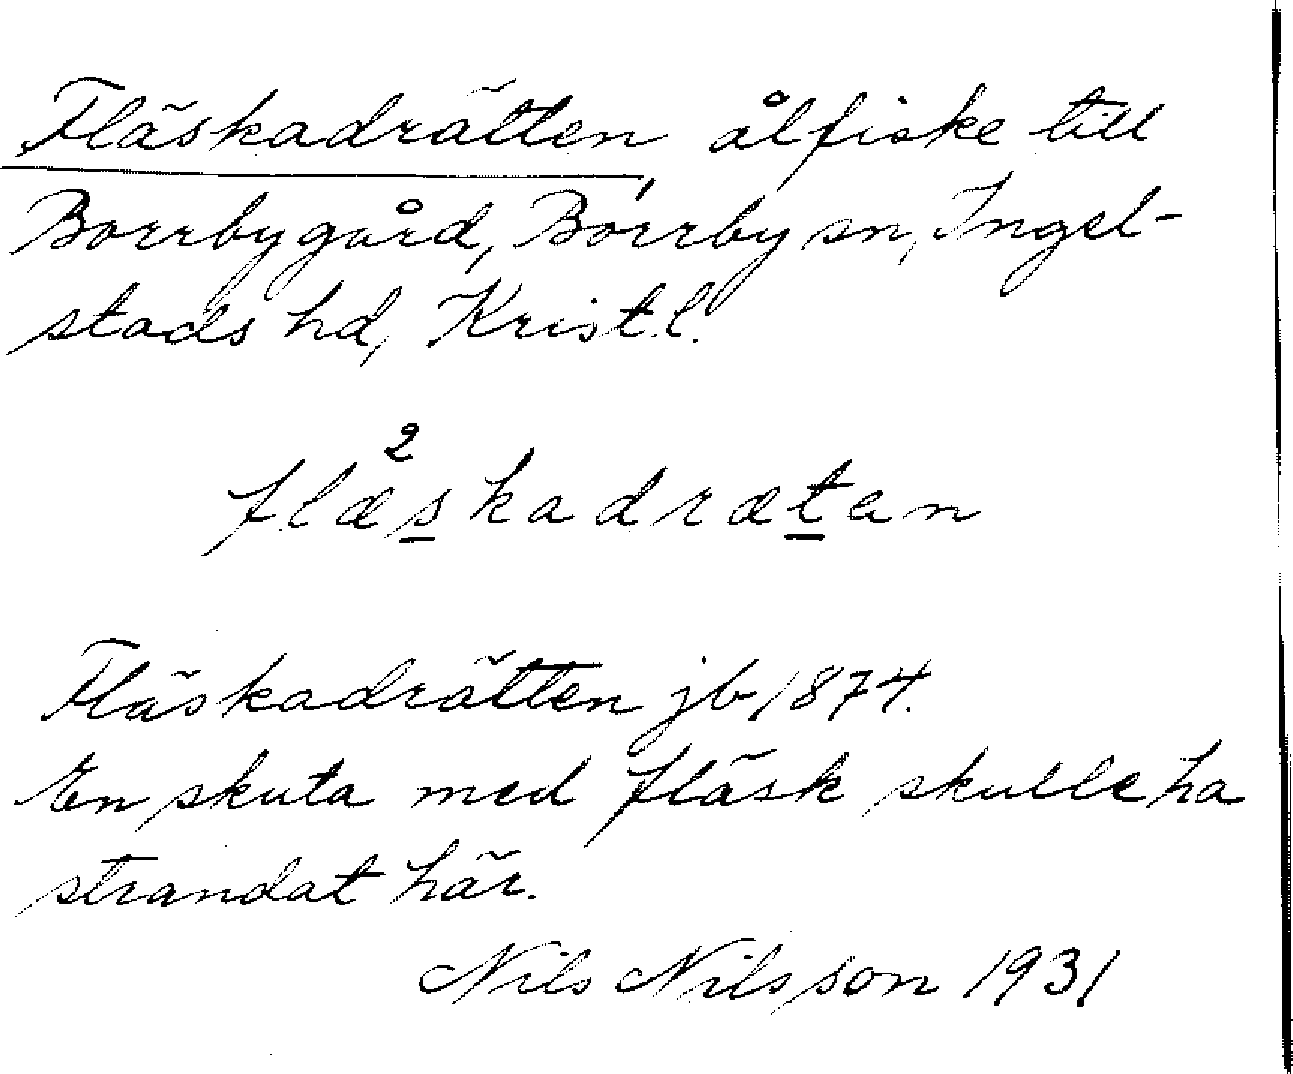 Fläskadrätten, ålfiske till
Borrbygård, Borrby sn, Ingel-
stads hd, Krist.l.
flæ²s̲kadræt̲an
Fläskadrätten jb 1874.
En skuta med fläsk skulle ha
strandat här.
Nils Nilsson 1931